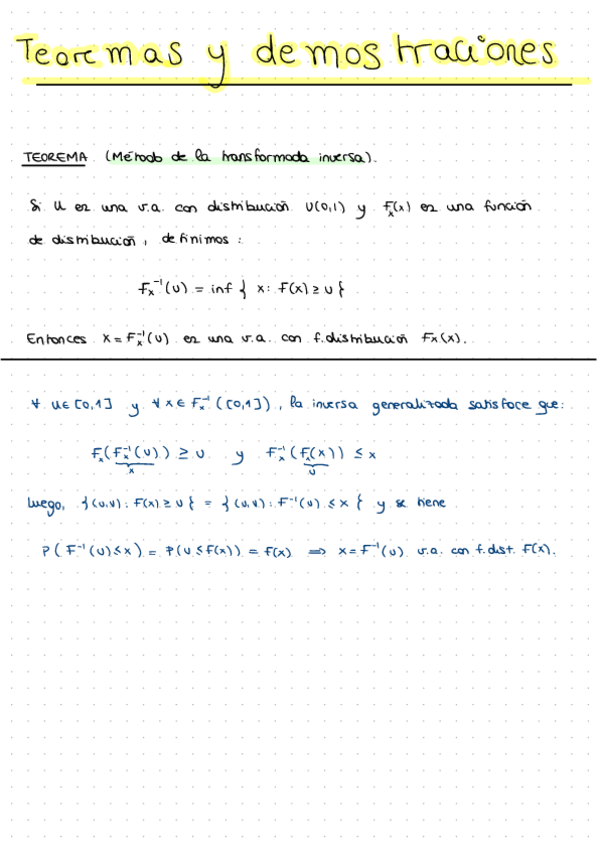 Teoremas y demostraciones
TEOREMA (Método de la transformada inversa).
Si U es una v.a. con distribución U(0,1) y Fx(x) es una función
de distribución, definimos:
Fx⁻¹(U) = inf { x: F(x) ≥ U }
Entonces X = Fx⁻¹(U) es una v.a. con f.distribución Fx(x).
∀ u ∈ [0,1] y ∀ x ∈ Fx⁻¹([0,1]), la inversa generalizada satisface que:
Fx(Fx⁻¹(U)) ≥ U y Fx⁻¹(Fx(x)) ≤ x
x U
Luego, {(u,v): F(x) ≥ U} = {(u,v): F⁻¹(U) ≤ x} y se tiene
P(F⁻¹(U) ≤ x) = P(U ≤ F(x)) = F(x) ⟹ x = F⁻¹(U) v.a. con f.dist. F(x).